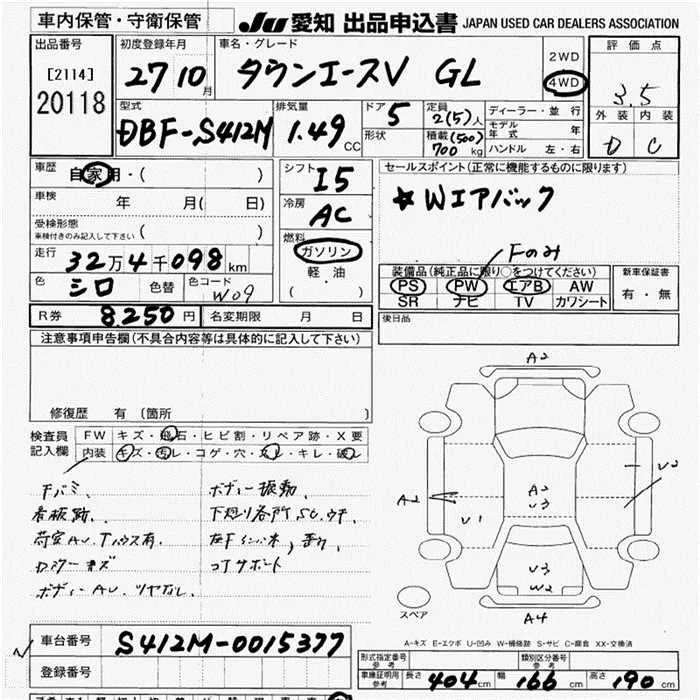 車内保管・守衛保管 JU 愛知 出品申込書 JAPAN USED CAR DEALERS ASSOCIATION
出品番号 初度登録年月 車名・グレード 2WD 評価点
[2114] 27 10月 タウンエースV GL 4WD 3.5
20118
型式 排気量 ドア 5 定員 2(5)人 ディーラー・並行 外装 内装
DBF-S412M 1.49 CC 形状 積載(500) 700 kg モデル年式 年 D C
ハンドル 左・右
車歴 自家用・( ) シフト I5 セールスポイント(正常に機能するものに限ります)
車検 年 月( 日) 冷房 AC ☆Wエアバック
受検形態
車検付きのみ記入して下さい ( ) 燃料
走行 32万4千098km ガソリン Fのみ
軽・油 装備品(純正品に限り○をつけてください) 新車保証書
色 シロ 色替 色コード W09 ( ) PS PW エアB AW 有・無
SR ナビ TV カワシート
R券 8,250円 名変期限 月 日 後日品
注意事項申告欄(不具合内容等は具体的に記入して下さい)
修復歴 有(箇所 )
検査員 FW キズ・飛石・ヒビ割・リペア跡・X要
記入欄 内装 キズ・汚レ・コゲ・穴・スレ・キレ・破レ
Fバミ、 ボディー振動、
看板跡、 下廻り各所SC、ウチ
ボディーAU、ツヤなし、 コTサポート
A2
A2 V2
A2
V3
V1
V3
W2
A4
スペア
A-キズ E-エクボ U-凹み W-補修跡 S-サビ C-腐食 XX-交換済
車台番号 S412M-0015377
登録番号
形式指定番号 参考 類別区分番号 参考
車庫証明用 参考 長さ 404cm 幅 166cm 高さ 190cm